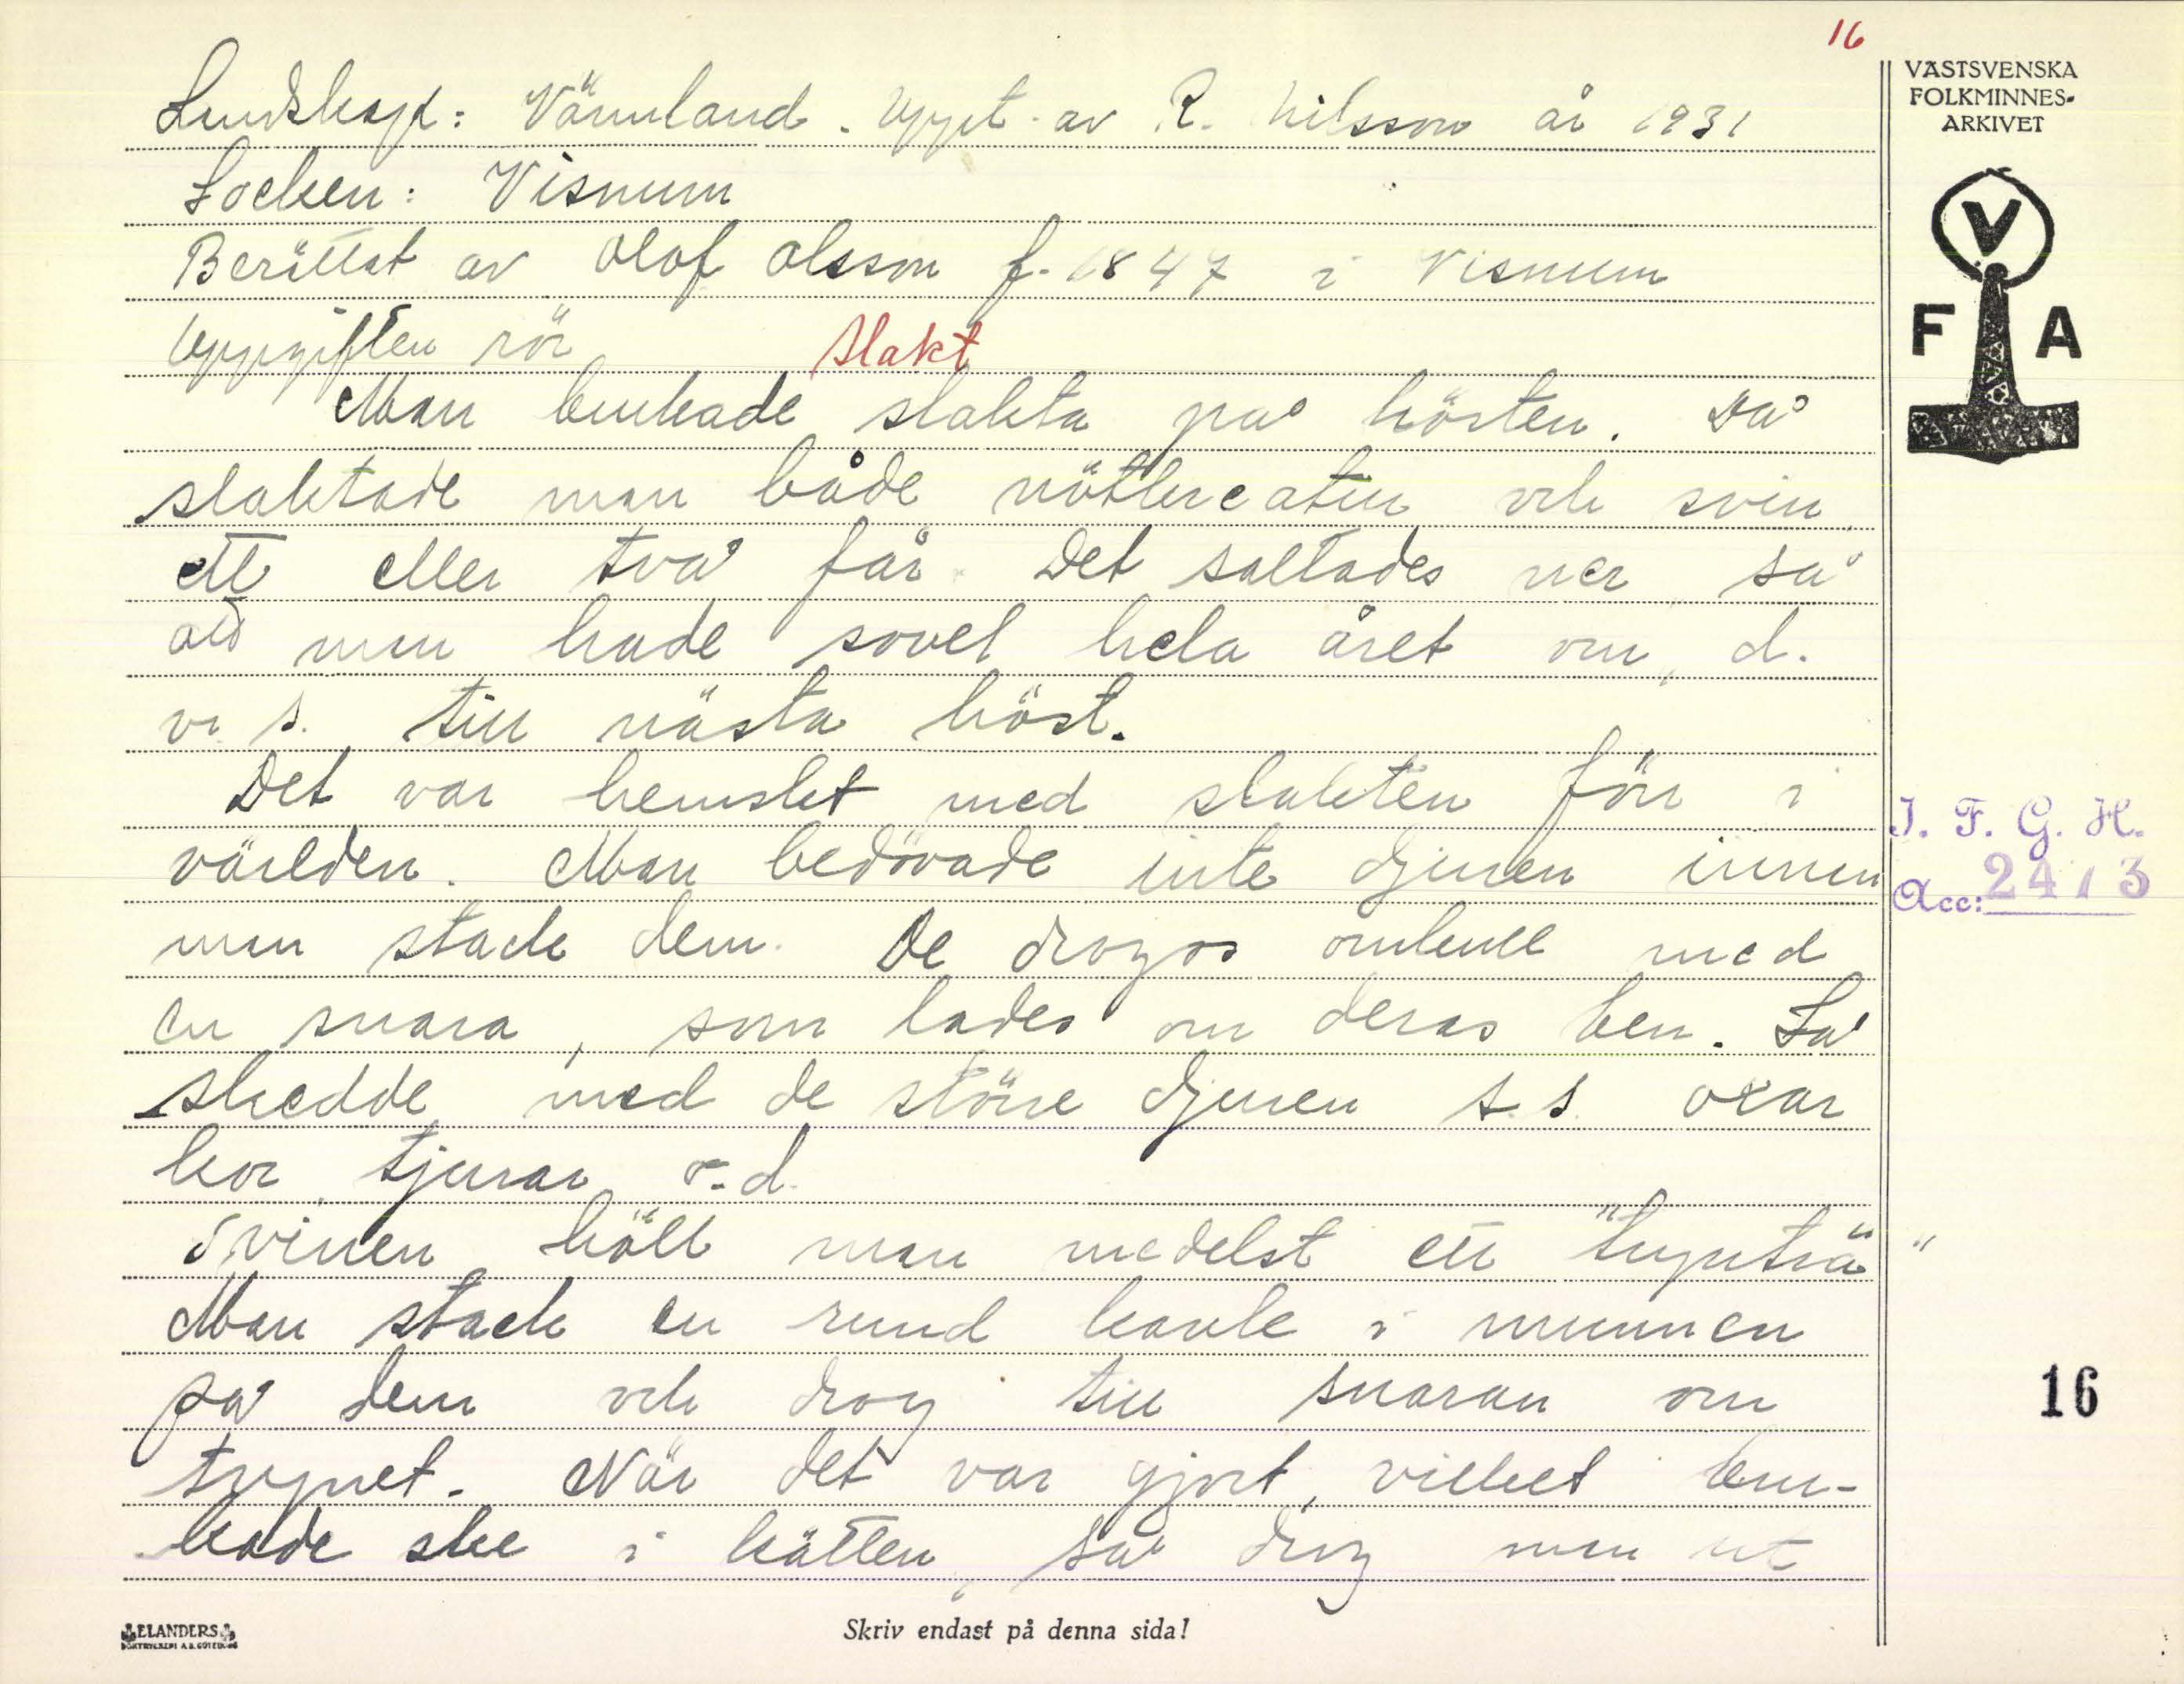 16
Landskap: Värmland. Uppt. av R. Nilsson år 1931
Socken: Visnum
Berättat av Olof Olsson f. 1847 i Visnum
Uppgiften rör Slakt
Man brukade slakta på hösten. Då
slaktade man både nötkreatur och svin,
ett eller två får. Det saltades ner, så
att man hade sovel hela året om, d.
v. s. till nästa höst.
Det var hemskt med slakten förr i
världen. Man bedövade inte djuren innan
man stack dem. De drogos omkull med
en snara, som lades om deras ben. Så
skedde med de större djuren s. s. oxar
kor, tjurar o. d.
Svinen höll man medelst ett "trynträ"
Man stack en rund kavle i munnen
på dem och drog till snaran om
trynet. När det var gjort, vilket bru-
kade ske i kätten, så drog man ut
VÄSTSVENSKA
FOLKMINNES-
ARKIVET
V
F A
I. F. G. H.
Acc: 2413
16
ELANDERS
BOKTRYCKERI A.B. GÖTEBORG
Skriv endast på denna sida!